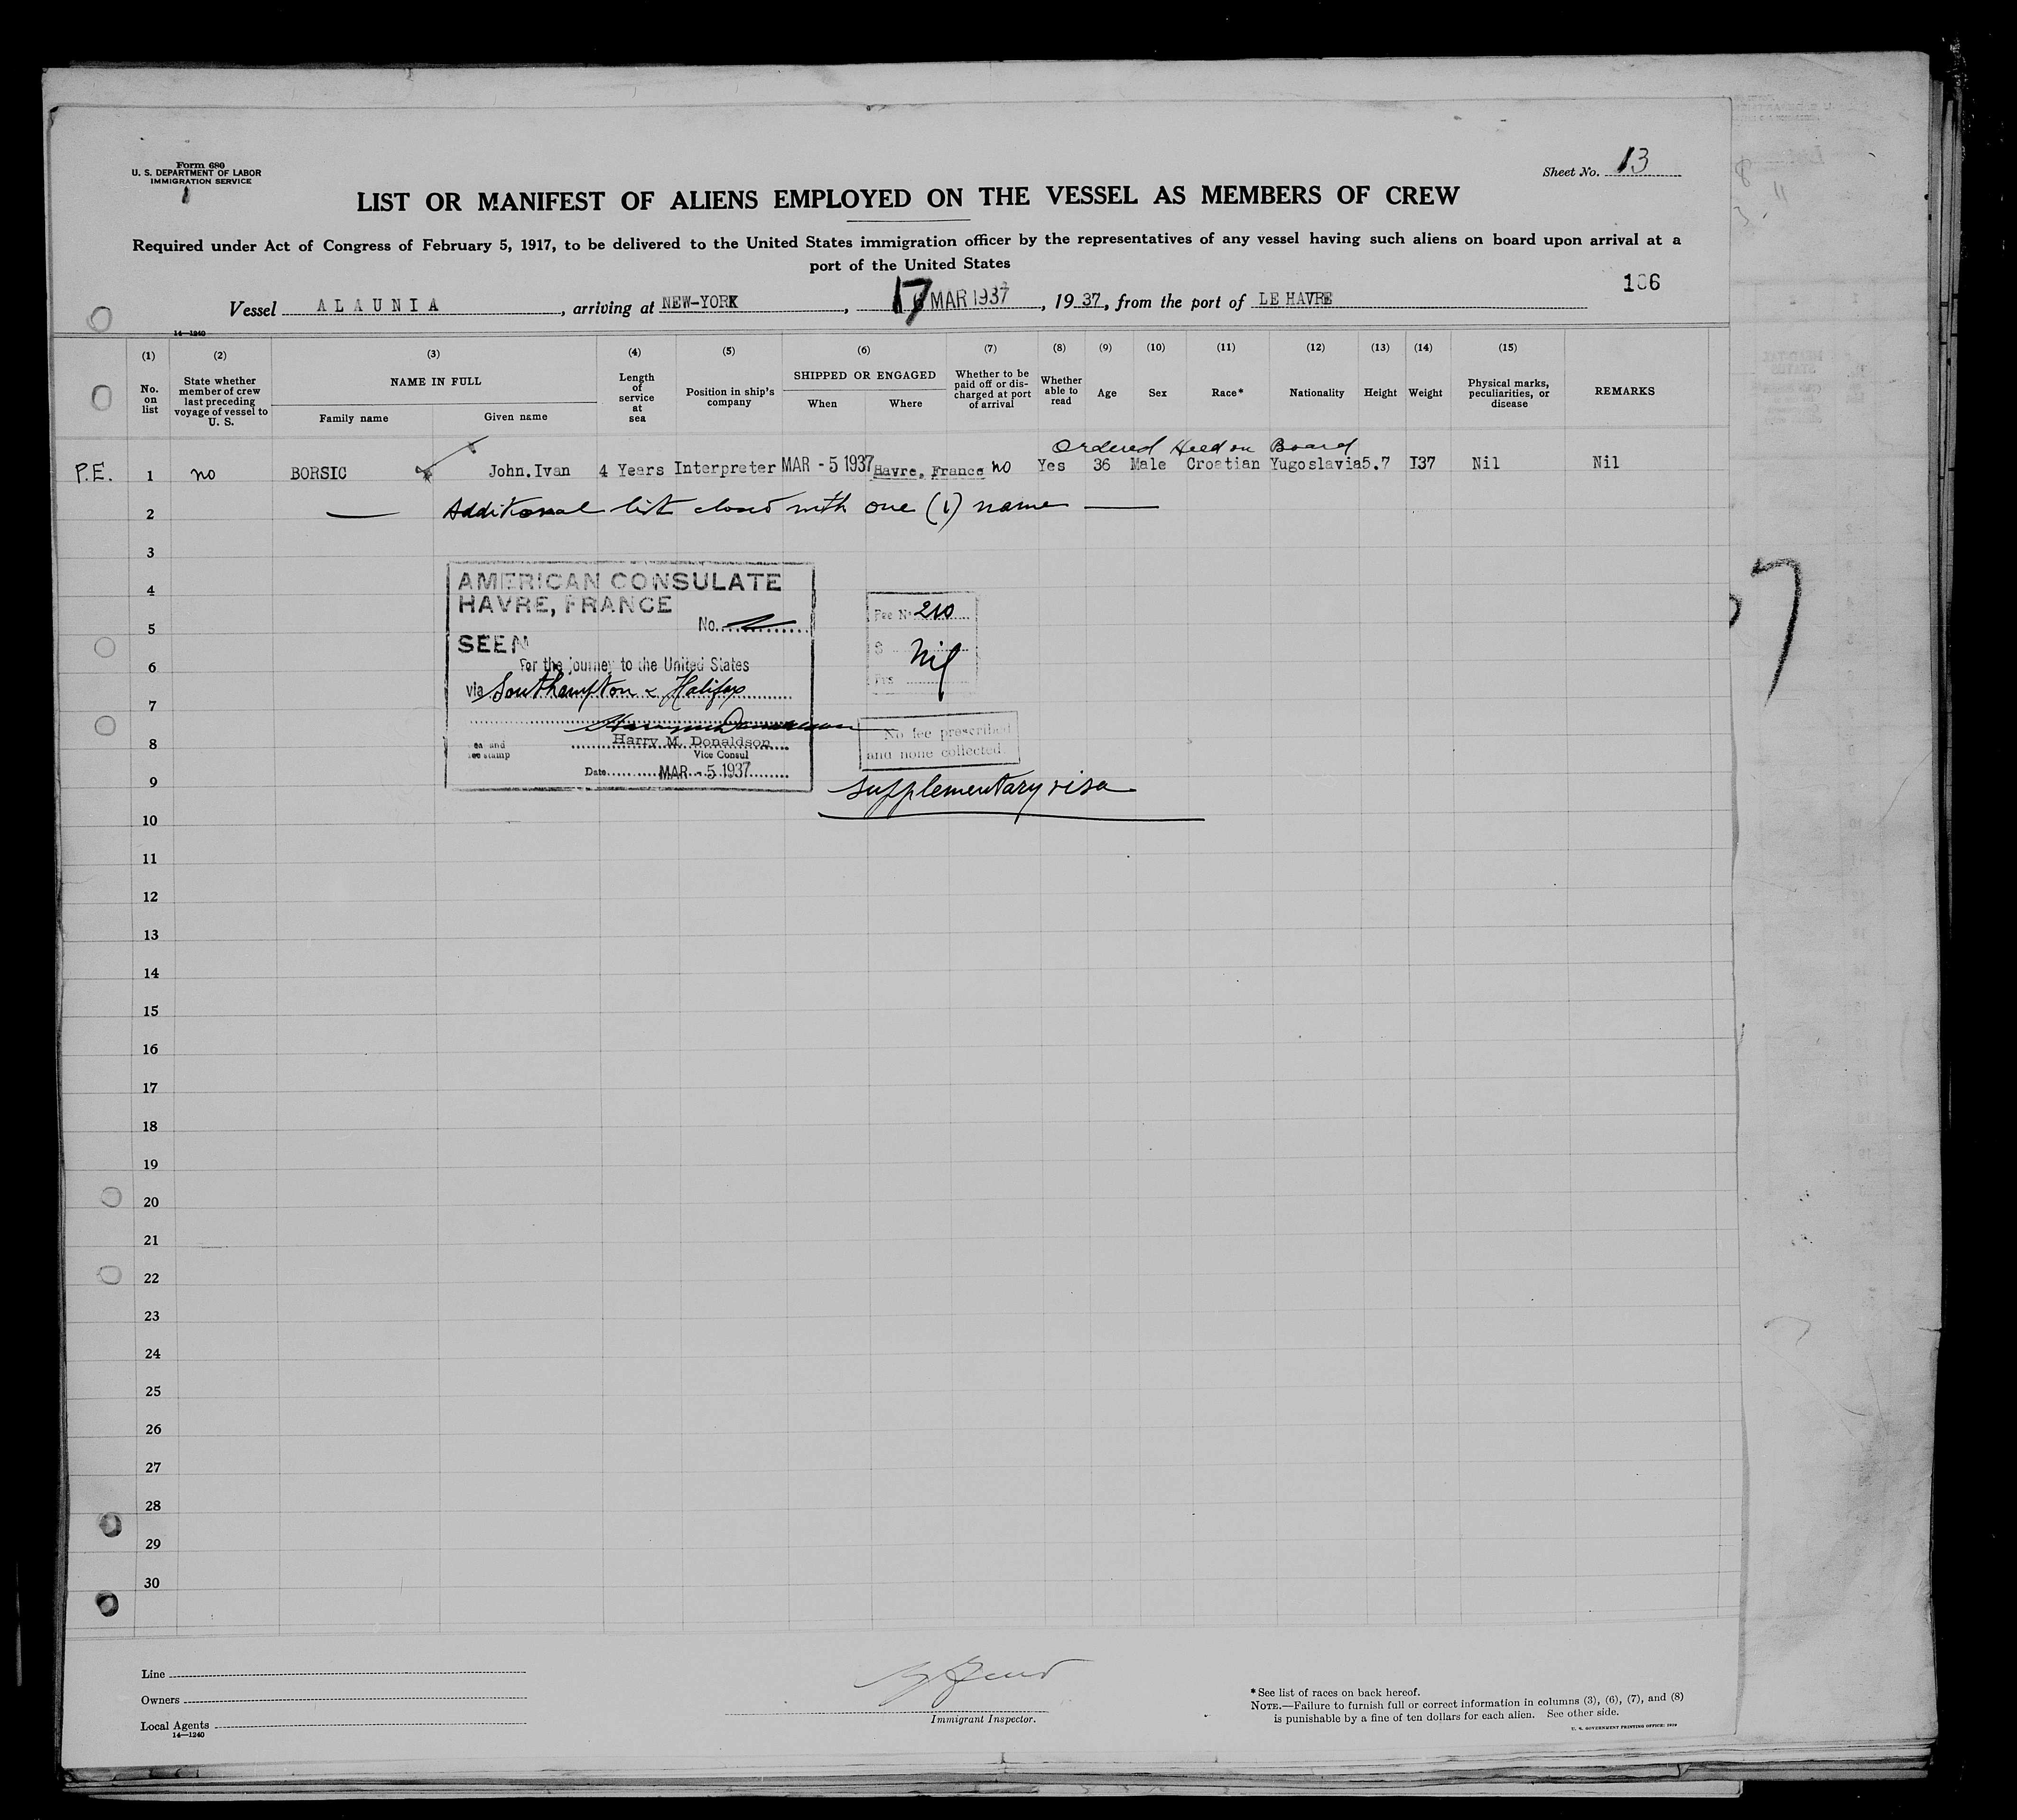 Form 680
U. S. DEPARTMENT OF LABOR
IMMIGRATION SERVICE
Sheet No. 13
LIST OR MANIFEST OF ALIENS EMPLOYED ON THE VESSEL AS MEMBERS OF CREW
Required under Act of Congress of February 5, 1917, to be delivered to the United States immigration officer by the representatives of any vessel having such aliens on board upon arrival at a
port of the United States
106
Vessel ALAUNIA, arriving at NEW-YORK, 17 MAR 1937, 1937, from the port of LE HAVRE
14—1240
(1) (2) (3) (4) (5) (6) (7) (8) (9) (10) (11) (12) (13) (14) (15)
No. on list
State whether member of crew last preceding voyage of vessel to U. S.
NAME IN FULL
Family name
Given name
Length of service at sea
Position in ship's company
SHIPPED OR ENGAGED
When
Where
Whether to be paid off or discharged at port of arrival
Whether able to read
Age
Sex
Race*
Nationality
Height
Weight
Physical marks, peculiarities, or disease
REMARKS
Ordered Held on Board
P.E. 1 no BORSIC John.Ivan 4 Years Interpreter MAR - 5 1937 Havre, France no Yes 36 Male Croatian Yugoslavia 5.7 I37 Nil Nil
2 Additional list closed with one (1) name
3
4
5
6
7
8
9
10
11
12
13
14
15
16
17
18
19
20
21
22
23
24
25
26
27
28
29
30
AMERICAN CONSULATE
HAVRE, FRANCE
No.
SEEN
For the journey to the United States
via Southampton & Halifax
Harry M. Donaldson
Vice Consul
Date MAR - 5 1937
Fee No 210
$ Nil
Frs
No fee prescribed
and none collected.
Supplementary visa
Line
Owners
Local Agents
14—1240
Immigrant Inspector.
*See list of races on back hereof.
NOTE.—Failure to furnish full or correct information in columns (3), (6), (7), and (8)
is punishable by a fine of ten dollars for each alien. See other side.